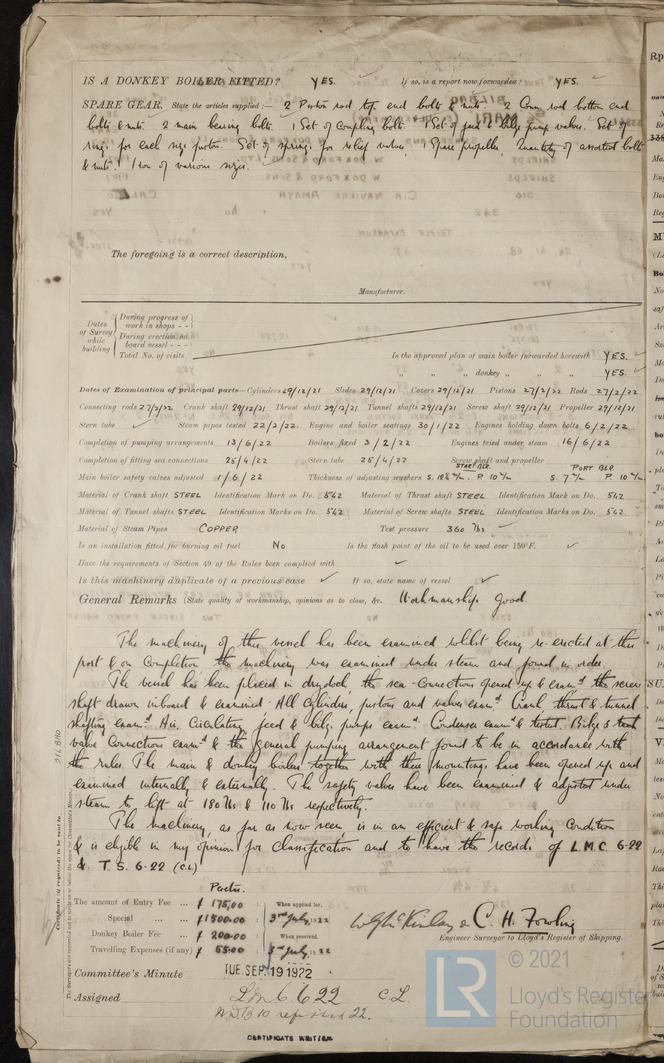 IS A DONKEY BOILER FITTED? YES. If so, is a report now forwarded? YES.
SPARE GEAR. State the articles supplied:— 2 Piston rod top end bolts & nuts. 2 Conn rod bottom end
bolts & nuts. 2 main bearing bolts. 1 Set of coupling bolts. 1 Set of feed & bilge pump valves. Set of
rings for each size piston. Set of springs for relief valves. 1 Spare propeller. Quantity of assorted bolts
& nuts. Iron of various sizes.
The foregoing is a correct description,
Manufacturer.
Dates of Survey while building
During progress of work in shops - -
During erection on board vessel - - -
Total No. of visits
Is the approved plan of main boiler forwarded herewith YES.
" " " donkey " " " YES.
Dates of Examination of principal parts—Cylinders 29/12/21 Slides 29/12/21 Covers 29/12/21 Pistons 27/2/22 Rods 27/2/22
Connecting rods 27/2/22 Crank shaft 29/12/21 Thrust shaft 29/12/21 Tunnel shafts 29/12/21 Screw shaft 29/12/21 Propeller 29/12/21
Stern tube Steam pipes tested 22/2/22. Engine and boiler seatings 30/1/22 Engines holding down bolts 6/2/22
Completion of pumping arrangements 13/6/22 Boilers fixed 3/2/22 Engines tried under steam 16/6/22
Completion of fitting sea connections 25/4/22 Stern tube 25/4/22 Screw shaft and propeller
Main boiler safety valves adjusted 1/6/22 Thickness of adjusting washers STARB BLR. P. 10 m/m. PORT BLR. S. 7 m/m P. 10 m/m
Material of Crank shaft STEEL Identification Mark on Do. 542 Material of Thrust shaft STEEL Identification Mark on Do. 542
Material of Tunnel shafts STEEL Identification Marks on Do. 542 Material of Screw shafts STEEL Identification Marks on Do. 542
Material of Steam Pipes COPPER Test pressure 360 lbs
Is an installation fitted for burning oil fuel No Is the flash point of the oil to be used over 150°F.
Have the requirements of Section 49 of the Rules been complied with
Is this machinery duplicate of a previous case If so, state name of vessel
General Remarks (State quality of workmanship, opinions as to class, &c. Workmanship Good.
The machinery of this vessel has been examined whilst being re-erected at this
port & on completion the machinery was examined under steam and found in order.
The vessel has been placed in dry dock, the sea-connections opened up & examd the screw
shaft drawn inboard & examined. All cylinders, pistons and valves examd Crank, thrust & tunnel
shafting examd. Air, Circulating, feed & bilge pumps examd. Condenser examd & tested. Bilge & tank
valve connections examd & the general pumping arrangement found to be in accordance with
the rules. The main & donkey boilers together with their mountings have been opened up and
examined internally & externally. The safety valves have been examined & adjusted under
steam to lift at 180 lbs & 110 lbs respectively.
The machinery, as far as now seen, is in an efficient & safe working condition
& is eligible in my opinion for classification and to have the records of L.M.C 6-22
& T.S. 6-22 (CL)
The amount of Entry Fee ... 175.00 When applied for,
Special ... ... 1500.00 3rd July 1922
Donkey Boiler Fee ... 200.00 When received,
Travelling Expenses (if any) 55.00 3rd July 1922
C. H. Fowling
Engineer Surveyor to Lloyd's Register of Shipping.
Committee's Minute TUE. SEP. 19 1922
Assigned LMC 6 22 CL.
CERTIFICATE WRITTEN
© 2021
Lloyd's Register
Foundation